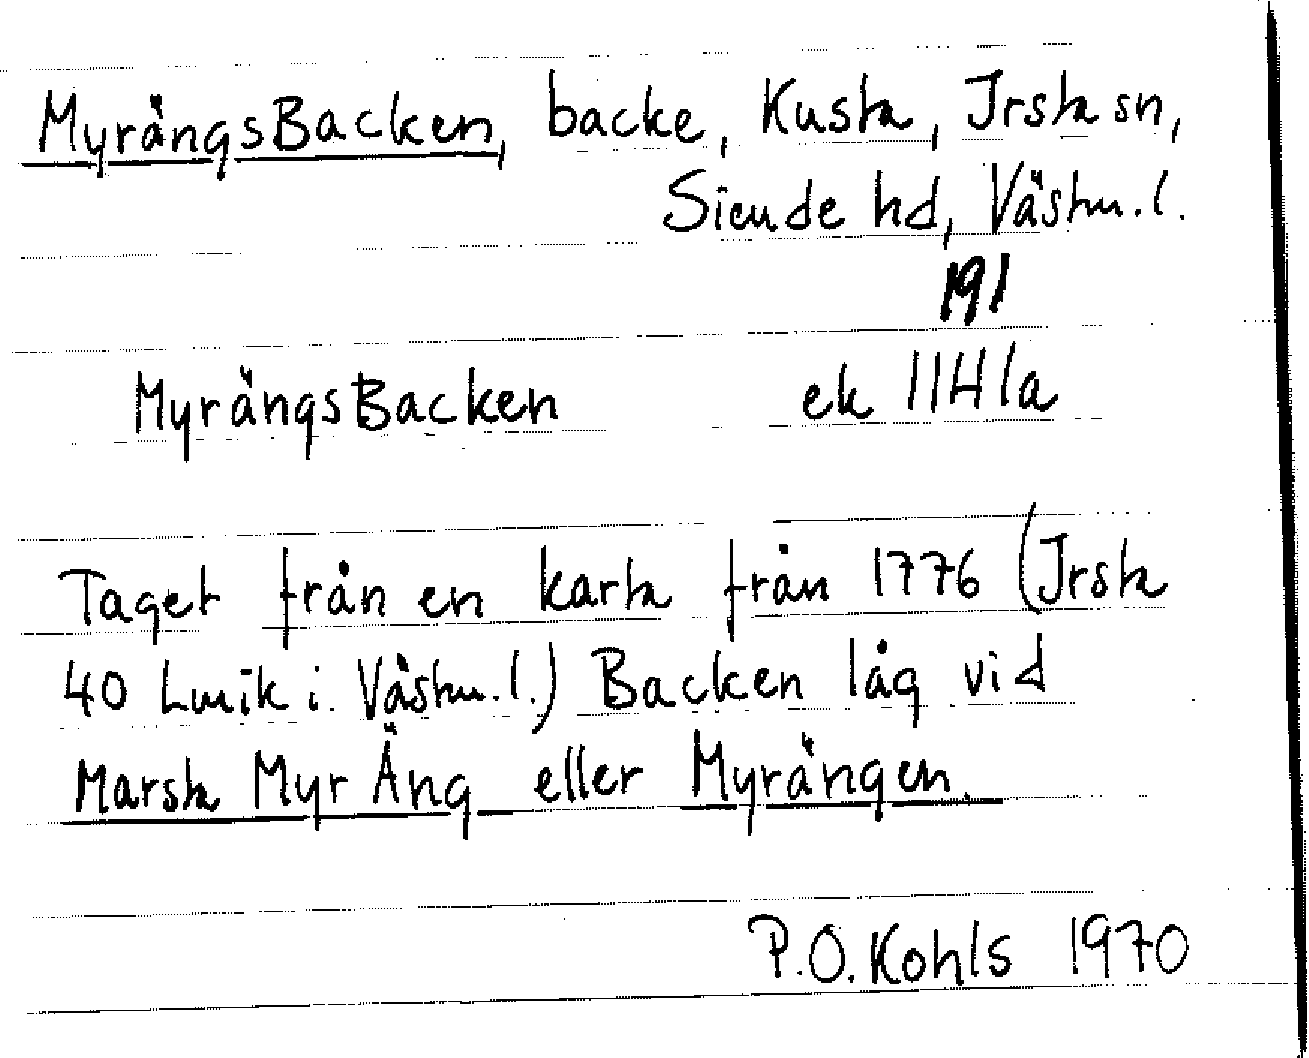 MyrängsBacken, backe, Kusta, Irsta sn,
Siende hd, Västm.l.
191
MyrängsBacken ek 11H1a
Taget från en karta från 1776 (Irsta
40 Lmik i Västm.l.) Backen låg vid
Marsta Myr Äng eller Myrängen.
P.O. Kohls 1970